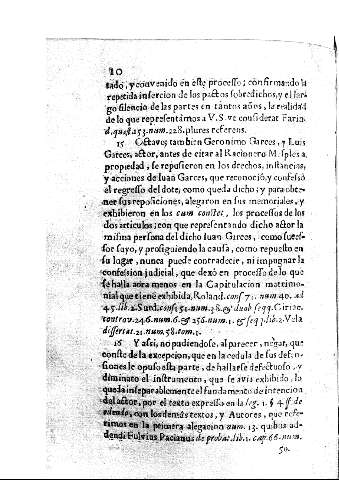 10
tado, y convenido en este processo; confirmando la
repetida insercion de los pactos sobredichos, y el lar-
go silencio de las partes en tantos años, la realidad
de lo que representamos a V.S. ve considerat Farin.
d. quæst. 53. num. 228. plures referens.
15 Octavo, tambien Geronimo Garces, y Luis
Garces, actor, antes de citar al Racionero M.
propiedad, se repusieron en los drechos, instancias,
y acciones de Iuan Garces, que reconociò, y confesò
el regresso del dote, como queda dicho; y para obte-
ner sus reposiciones, alegaron en sus memoriales, y
exhibieron en los cum constet, los processos de los
dos articulos; con que representando dicho actor la
misma persona del dicho Iuan Garces, como suces-
sor suyo, y prosiguiendo la causa, como repuesto en
su lugar, nunca puede contradecir, ni impugnar la
confession judicial, que dexò en processo de lo que
se halla aora menos en la Capitulacion matrimo-
nial que tiene exhibida, Roland. cons. 71. num. 40. ad
45. lib. 2. Surd. cons. 51. num. 28. & duob. seqq. Ciriac.
controv. 246. num. 6. & 256. num. 1. & seq. lib. 2. Vela
dissertat. 21. num. 58. tom. 1.
16 Y assi, no pudiendose, al parecer, negar, que
conste de la excepcion, que en la cedula de sus defen-
siones le opuso esta parte, de hallarse defectuoso, y
diminuto el instrumento, que se avia exhibido, lo
queda inseparablemente el fundamento de intencion
del actor, por el texto expresso en la leg. 1. § 4. ff. de
edendo, con los demàs textos, y Autores, que refe-
rimos en la primera alegacion num. 13. quibus ad-
dendi Fulvius Pacianus de probat. lib. 1. cap. 66. num.
50.